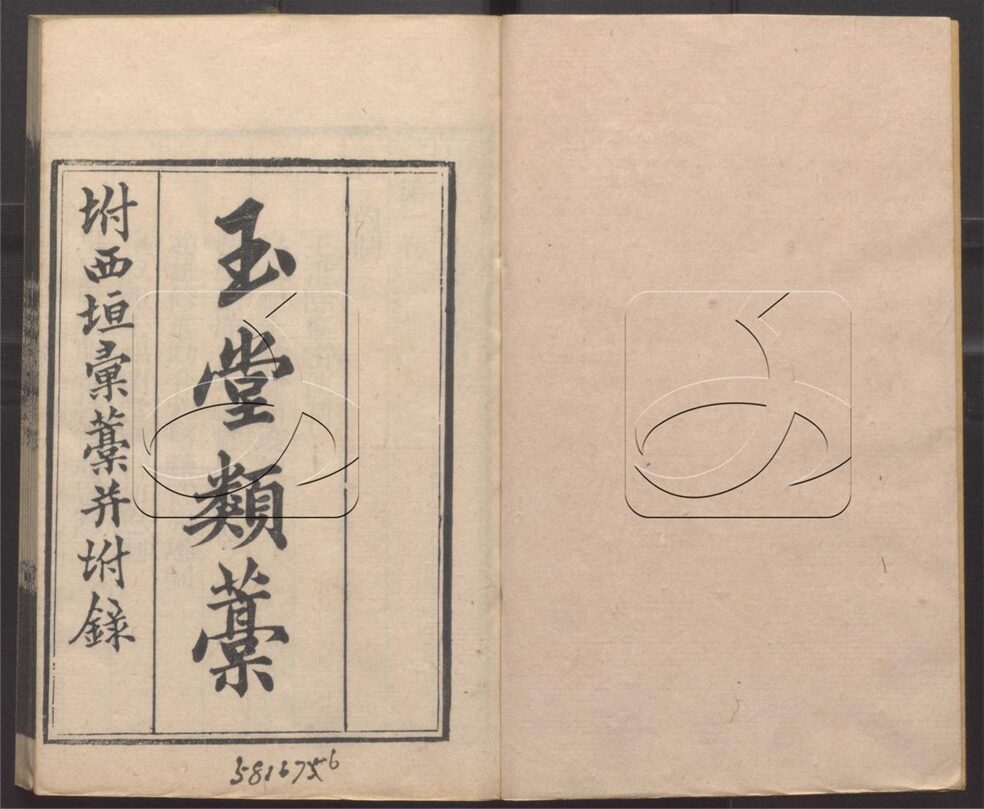 玉堂類藁
坿西垣彙藁并坿錄
5816756